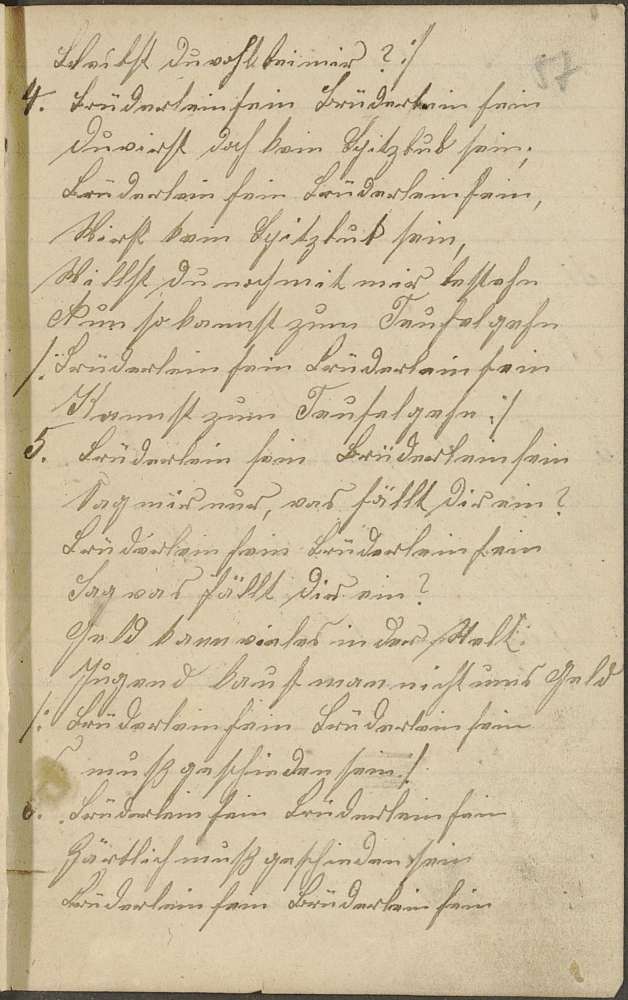 bleibst du wohl bei mir ? :/
57
4. Brüderlein fein Brüderlein fein
Du wirst doch kein Spitzbub sein,
Brüderlein fein Brüderlein fein,
Wirst kein Spitzbub sein,
Willst du noch mit mir bestehn
Nun so kannst zum Teufel gehn
/: Brüderlein fein Brüderlein fein
Kannst zum Teufel gehn :/
5. Brüderlein fein Brüderlein fein
Sag mir nur, was fällt dir ein ?
Brüderlein fein Brüderlein fein
Sag was fällt dir ein ?
Geld kann vieles in der Welt.
Jugend kauft man nicht ums Geld
/: Brüderlein fein Brüderlein fein
muß geschieden sein :/
6. Brüderlein fein Brüderlein fein
Zärtlich muß geschieden sein
Brüderlein fein Brüderlein fein